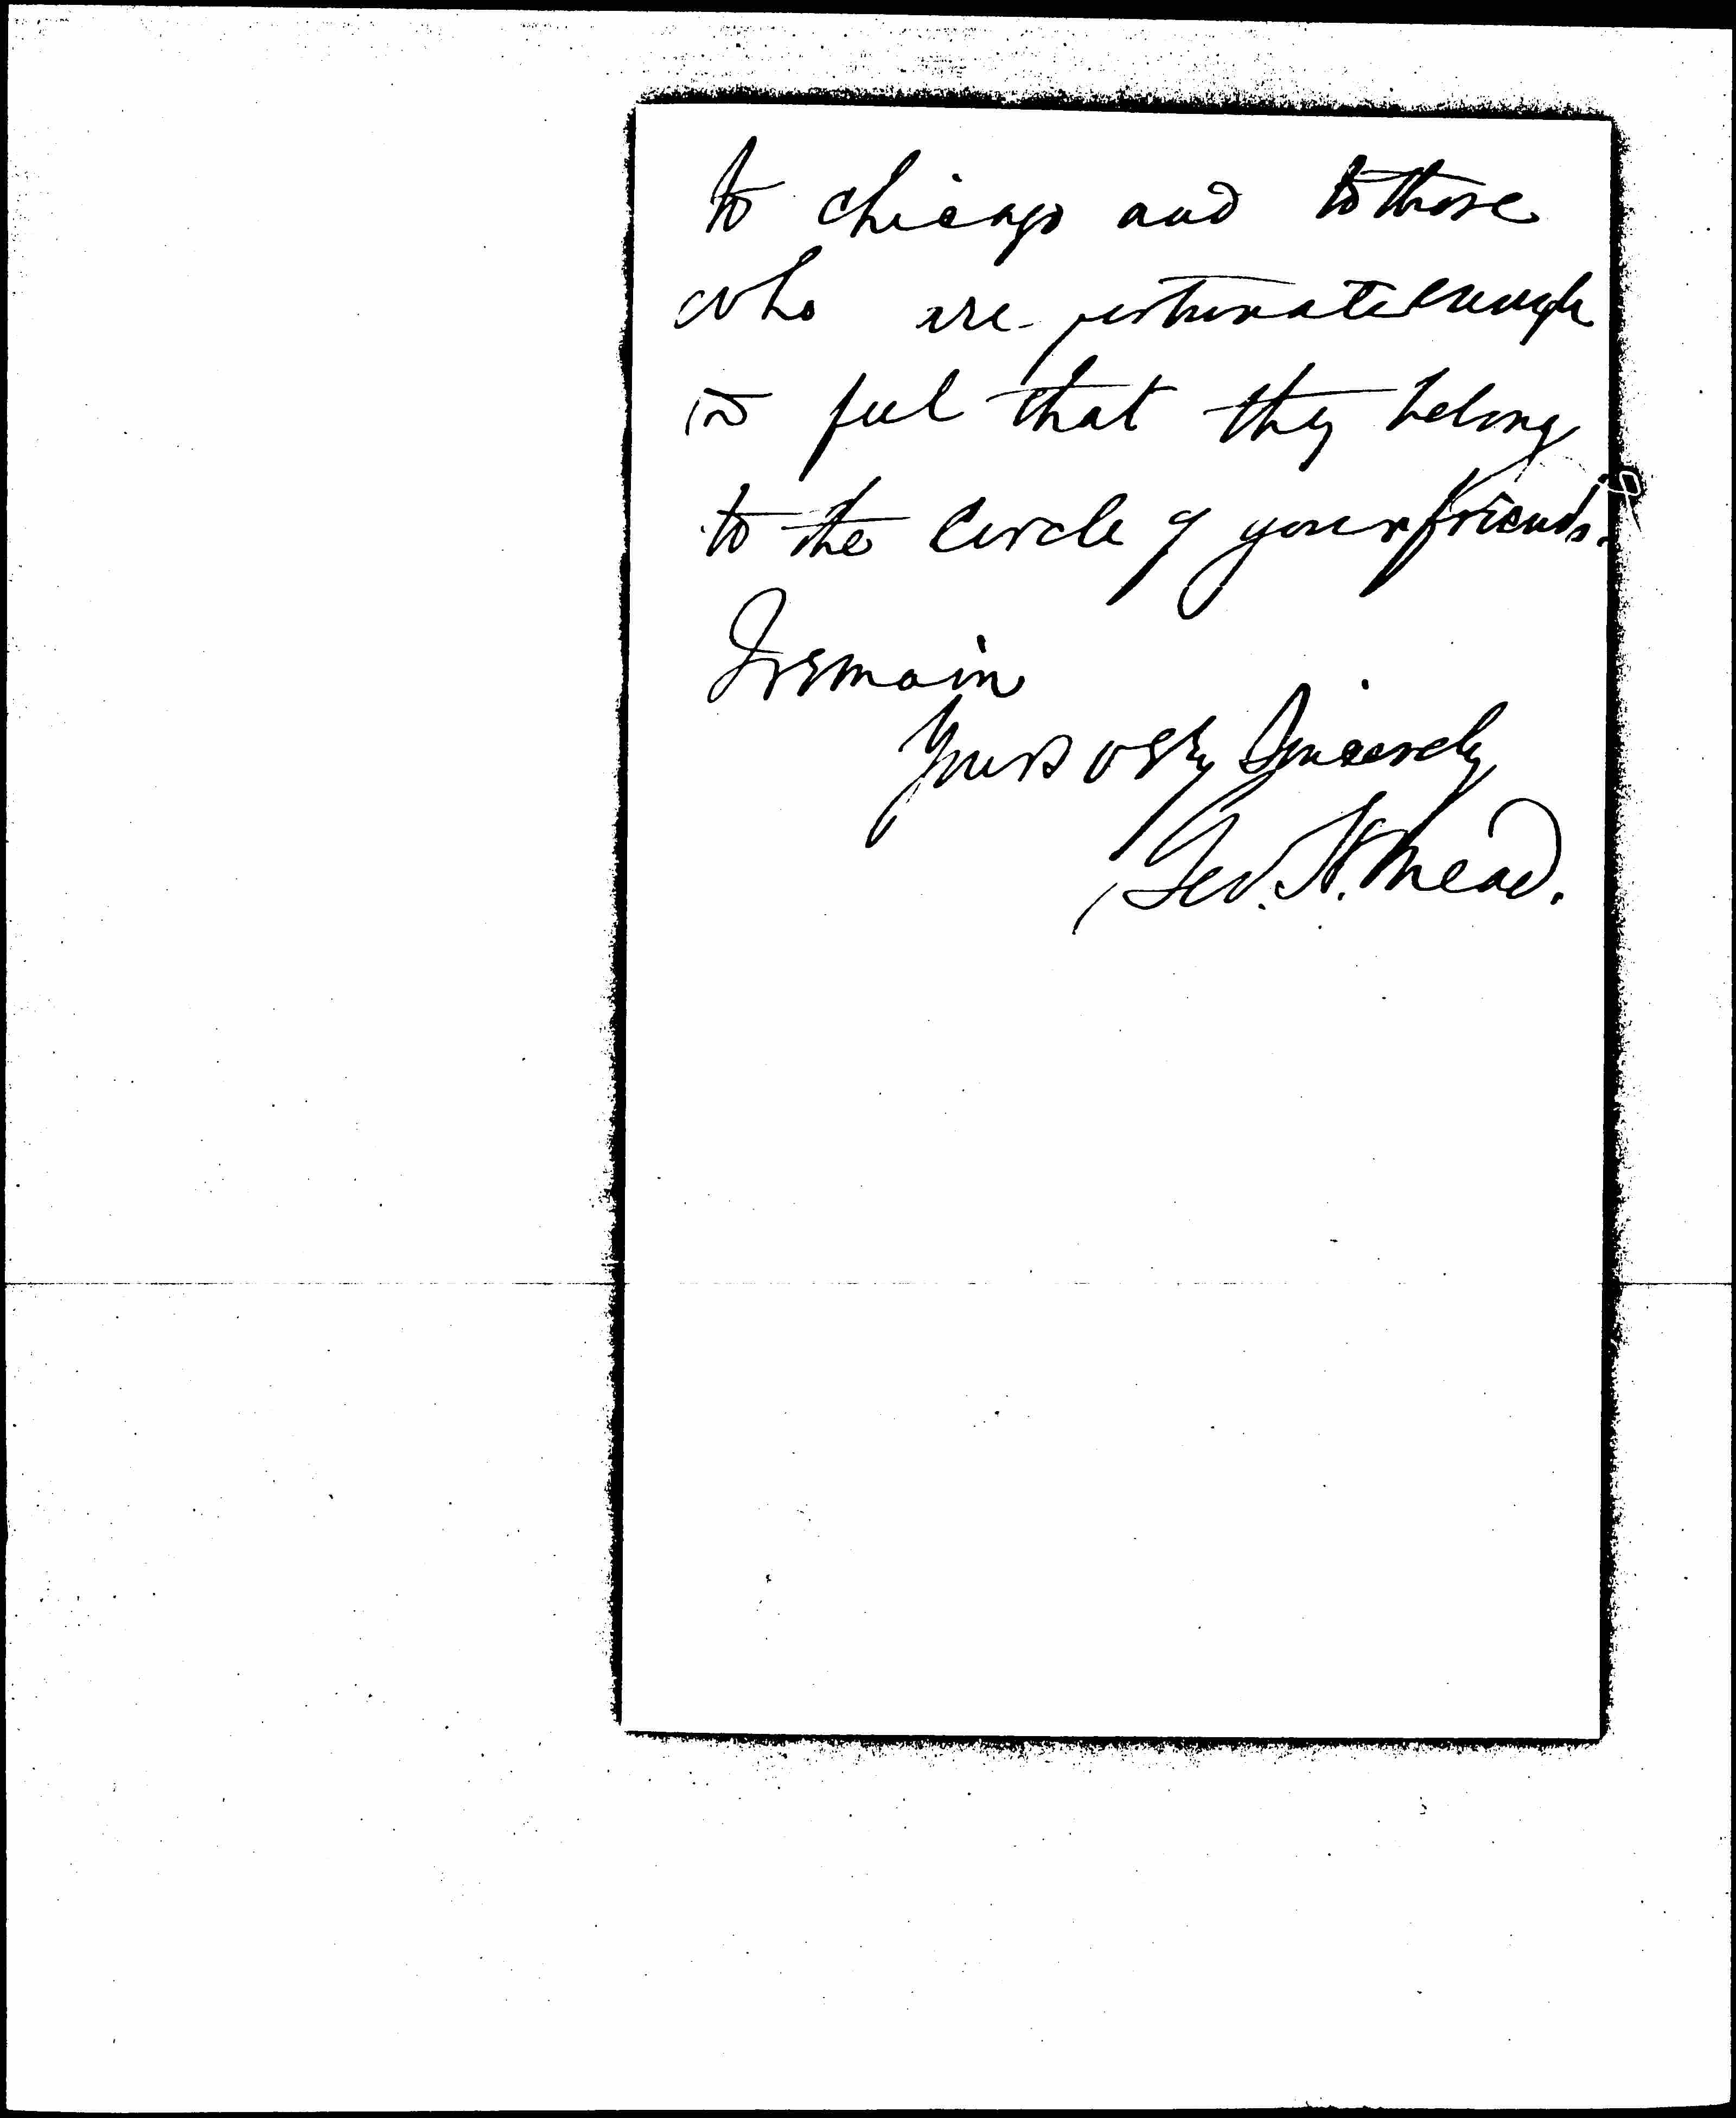 to Chicago and to those
who are fortunate enough
to feel that they belong
to the circle of your friends.
I remain
Yours very Sincerely
Geo. H. Mead.